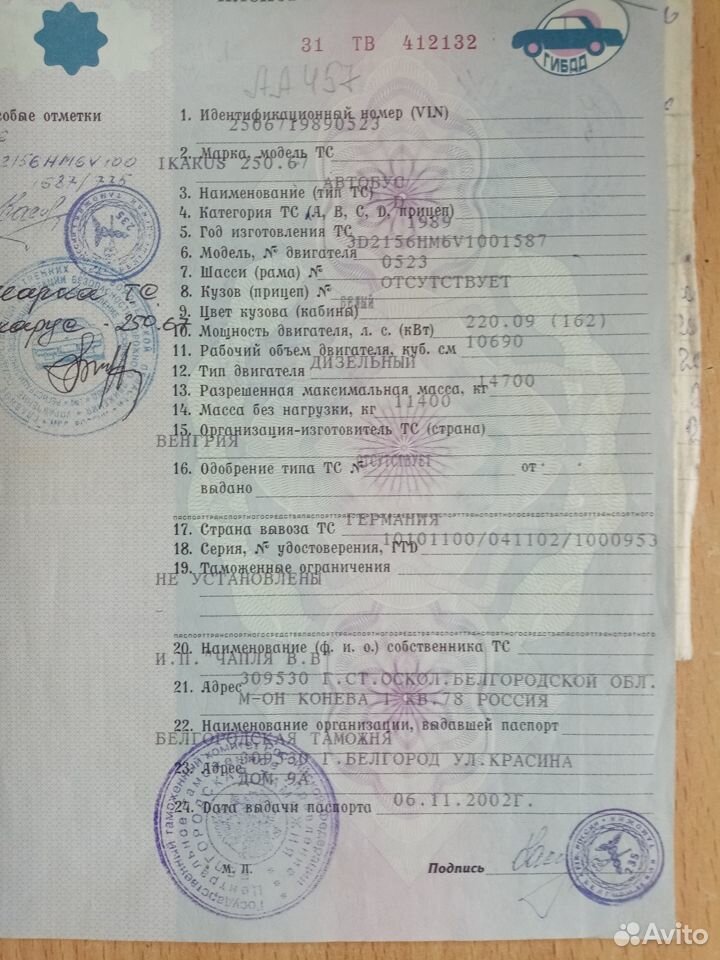 31 ТВ 412132
ГИБДД
АА457
собые отметки
2156HM6V100
1587/
1. Идентификационный номер (VIN)
2506719890523
2. Марка, модель ТС
IKARUS 250.67
АВТОБУС
3. Наименование (тип ТС)
D
4. Категория ТС (А, В, С, D, прицеп)
1989
5. Год изготовления ТС
3D2156HM6V1001587
6. Модель, № двигателя
0523
7. Шасси (рама) №
ОТСУТСТВУЕТ
8. Кузов (прицеп) №
БЕЛЫЙ
9. Цвет кузова (кабины)
220.09 (162)
10. Мощность двигателя, л. с. (кВт)
10690
11. Рабочий объем двигателя, куб. см
ДИЗЕЛЬНЫЙ
12. Тип двигателя
14700
13. Разрешенная максимальная масса, кг
11400
14. Масса без нагрузки, кг
15. Организация-изготовитель ТС (страна)
ВЕНГРИЯ
ОТСУТСТВУЕТ
16. Одобрение типа ТС № от
выдано
ГЕРМАНИЯ
17. Страна вывоза ТС
10101100/041102/1000953
18. Серия, № удостоверения, ГТД
19. Таможенные ограничения
НЕ УСТАНОВЛЕНЫ
20. Наименование (ф. и. о.) собственника ТС
И.П. ЧАПЛЯ В.В
309530 Г.СТ.ОСКОЛ.БЕЛГОРОДСКОЙ ОБЛ.
21. Адрес
М-ОН КОНЕВА 1 КВ.78 РОССИЯ
22. Наименование организации, выдавшей паспорт
БЕЛГОРОДСКАЯ ТАМОЖНЯ
Г.БЕЛГОРОД УЛ.КРАСИНА
23. Адрес
ДОМ 9А
06.11.2002Г.
24. Дата выдачи паспорта
М. П.
Подпись
марка Т.С.
карус - 250.67
235
235
Avito